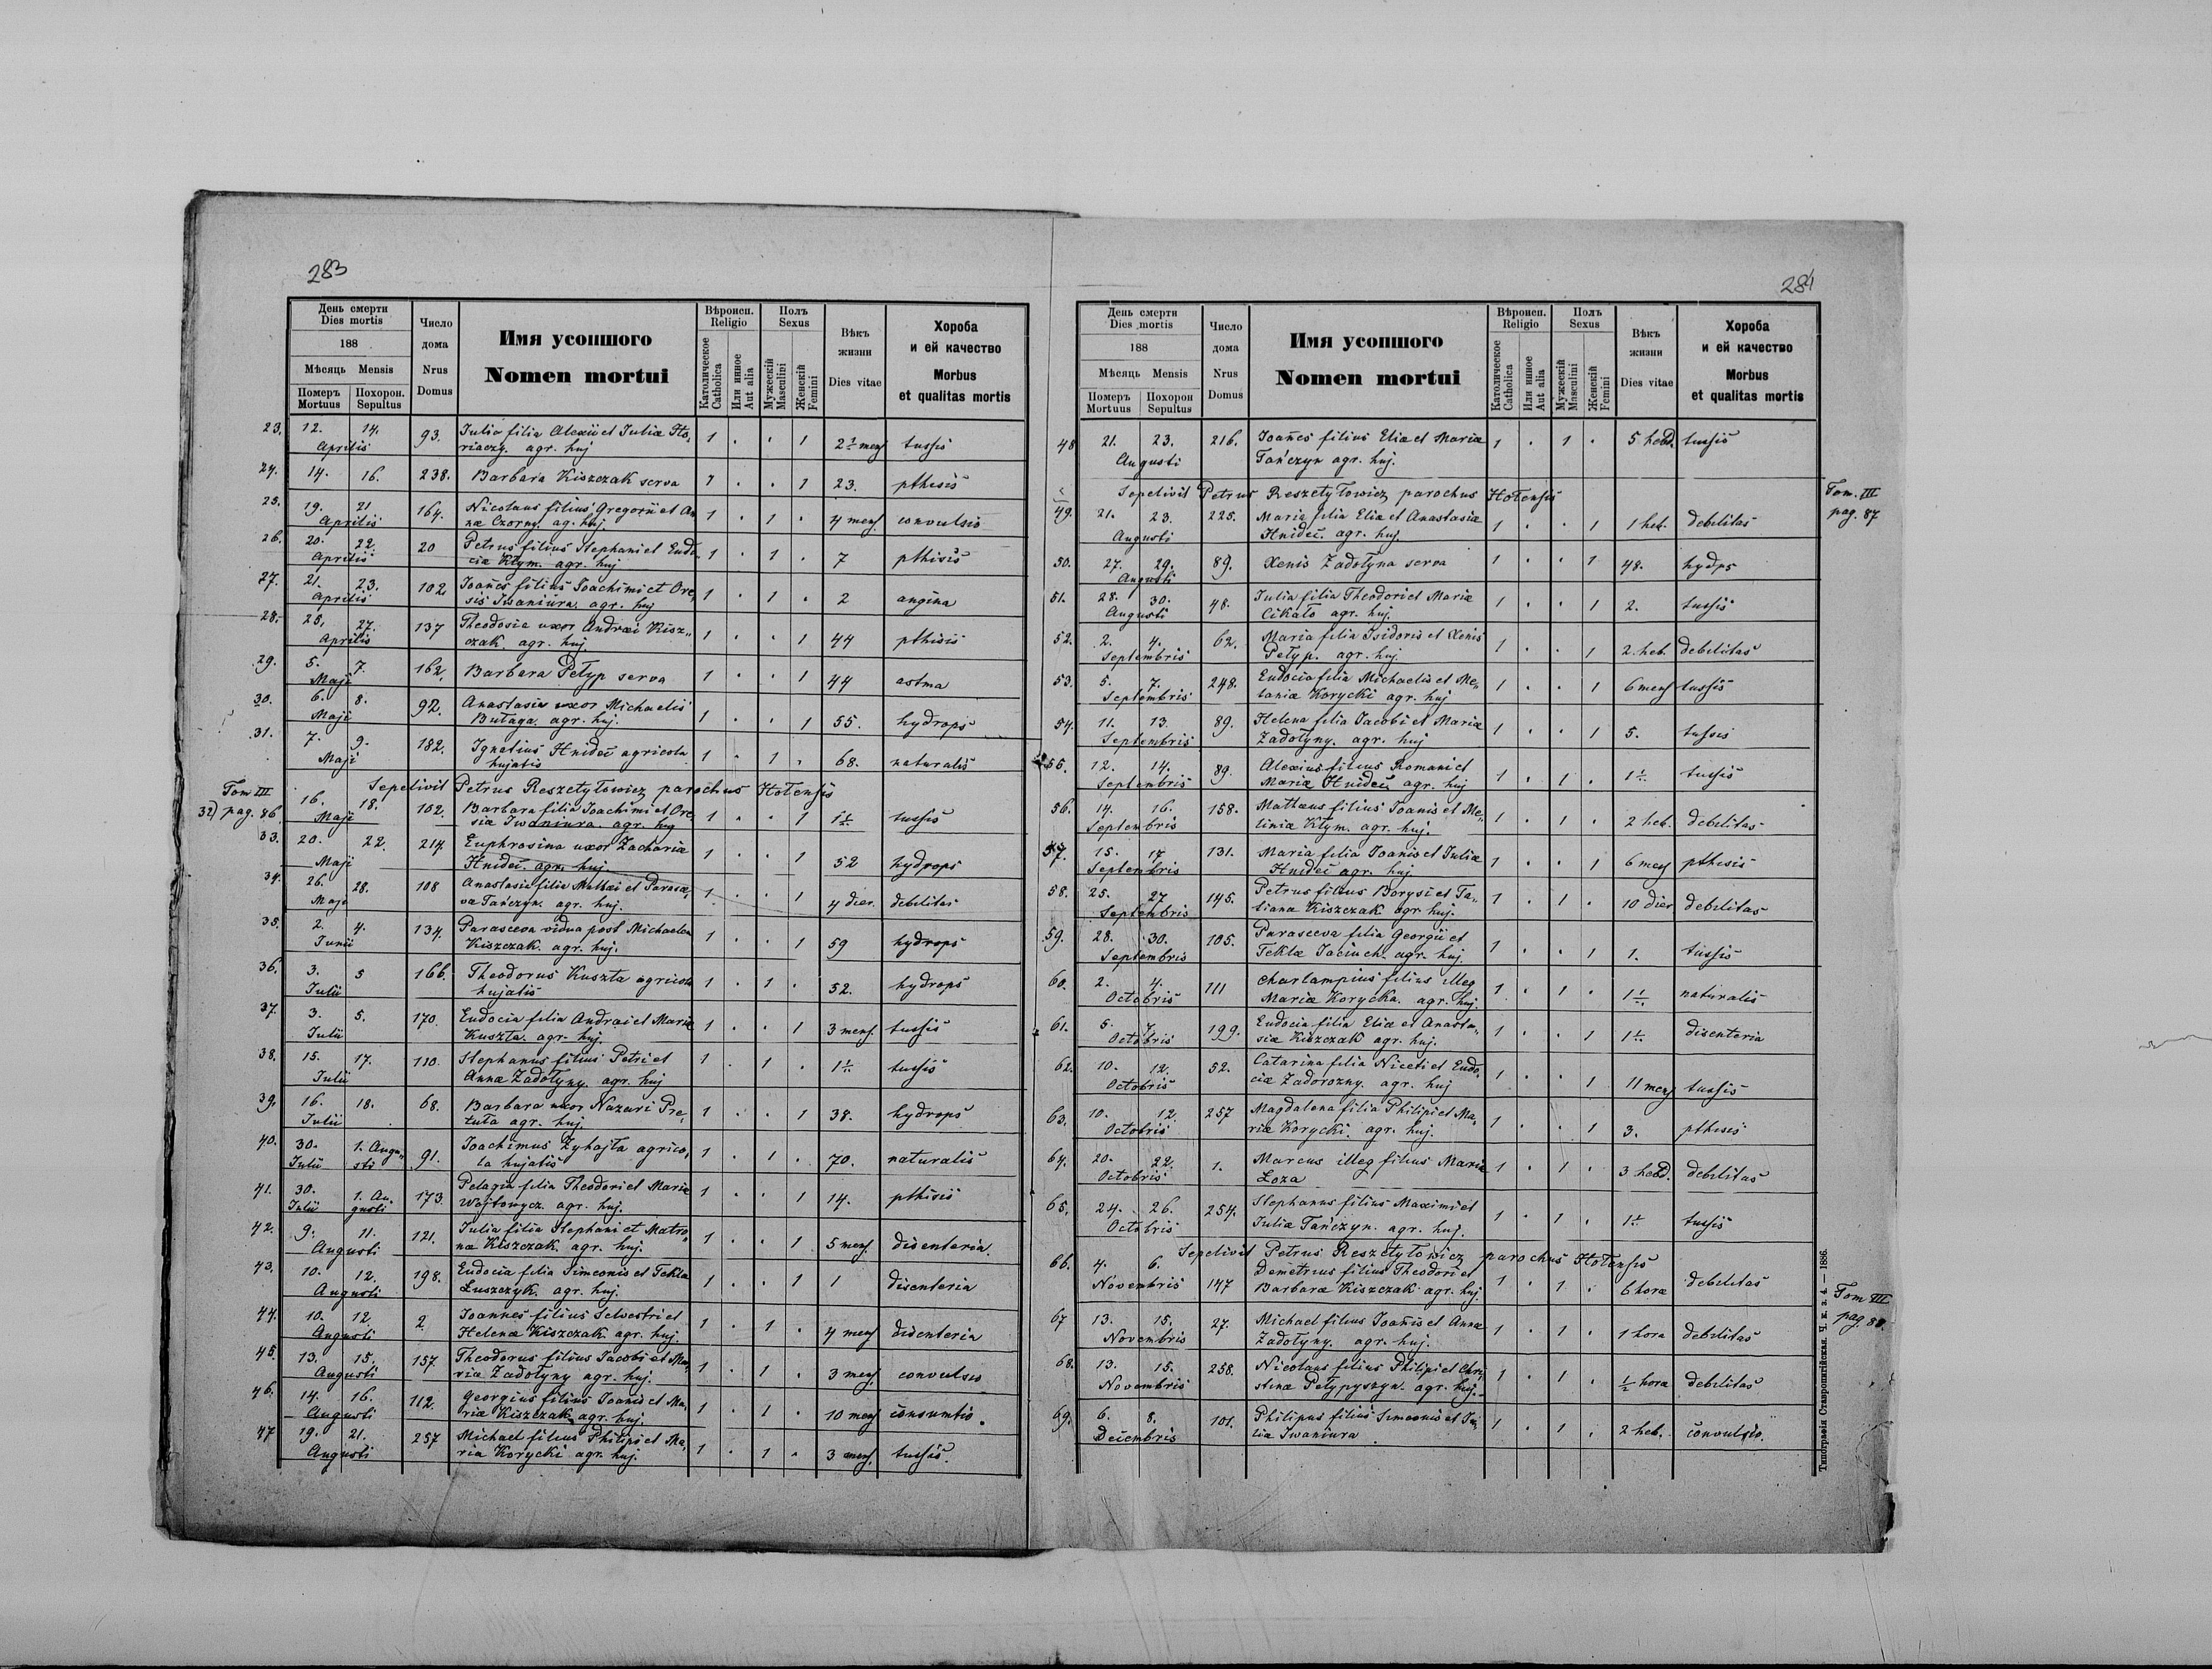 283
День смерти
Dies mortis
188
Мѣсяць Mensis
Померъ Похорон.
Mortuus Sepultus
Число
дома
Nrus
Domus
Имя усопшого
Nomen mortui
Вѣроисп.
Religio
Католическое
Catholica
Или инное
Aut alia
Полъ
Sexus
Мужескій
Masculini
Женскій
Femini
Вѣкъ
жизни
Dies vitae
Хороба
и ей качество
Morbus
et qualitas mortis
23. 12. 14. 93. Iulia filia Alexii et Iuliæ Ho„ 1 . . 1 2½ mens tussis
Aprilis riaczy. agr. huj
24. 14. 16. 238. Barbara Kiszczak serva 1 . . 1 23. pthisis
25. 19. 21 164. Nicolaus filius Gregorii et An 1 . 1 . 4 mens. convulsio
Aprilis næ Czorny. ag. huj
26. 20. 22. 20 Petrus filius Stephani et Eudo 1 . 1 . 7 pthisis
Aprilis ciæ Kłym. agr. huj
27. 21. 23. 102 Ioañes filius Ioachimi et Ore„ 1 . 1 . 2 angina
Aprilis sis Iwaniura. agr. huj
28. 25. 27. 137 Theodosia uxor Andræi Kisz„ 1 . . 1 44 pthisis
Aprilis czak. agr. huj.
29. 5. 7. 162. Barbara Petyp serva 1 . . 1 44 astma
Maji
30. 6. 8. 92. Anastasia uxor Michaelis 1 . . 1 55. hydrops
Maji Bułaga. agr. huj.
31. 7. 9. 182. Ignatius Hnideć agricola 1 . 1 . 68. naturalis
Maji hujatis
Tom III Sepelivit Petrus Reszetyłowicz parochus Hołensis
32) pag. 86 16. 18. 102. Barbara filia Ioachimi et Ore„ 1 . . 1 1½ tussis
Maji siæ Iwaniura. agr. huj
33. 20. 22. 214. Euphrosina uxor Zachariæ 1 . . 1 52 hydrops
Maji Hnideć. agr. huj.
34. 26. 28. 108 Anastasia filia Mathæi et Parasce„ 1 . . 1 4 dier. debilitas
Maji va Tańczyn. agr. huj.
35. 2. 4. 134. Parasceva vidua post Michaelem 1 . . 1 59 hydrops
Iunii Kiszczak. agr. huj.
36. 3. 5 166. Theodorus Kuszta agricola 1 . 1 . 52. hydrops
Iulii hujatis
37. 3. 5. 170. Eudocia filia Andræi et Mariæ 1 . . 1 3 mens. tussis
Iulii Kuszta. agr. huj.
38. 15. 17. 110. Stephanus filius Petri et 1 . 1 . 1½ tussis
Iulii Annæ Zadołyny. agr. huj
39. 16. 18. 68. Barbara uxor Nazari Pre„ 1 . . 1 38. hydrops
Iulii tuła agr. huj.
40. 30. 1. Augu„ 91. Ioachimus Zyhajła agrico„ 1 . 1 . 70. naturalis
Iulii sti la hujatis
41. 30. 1. Au„ 173. Pelagia filia Theodori et Mariæ 1 . . 1 14. pthisis
Iulii gusti Wojtowycz. agr. huj.
42. 9. 11. 121. Iulia filia Stephani et Matro„ 1 . . 1 5 mens. disenteria.
Augusti næ Kiszczak. agr. huj.
43. 10. 12. 198. Eudocia filia Simeonis et Teklæ 1 . . 1 1 disenteria
Augusti Łuszczyk. agr. huj.
44. 10. 12. 2 Ioannes filius Selvestri et 1 . 1 . 4 mens disenteria
Augusti Helenæ Kiszczak. agr. huj.
45. 13. 15. 157. Theodorus filius Iacobi et Ma„ 1 . 1 . 3 mens convulsio
Augusti riæ Zadołyny agr. huj.
46. 14. 16. 112. Georgius filius Ioanis et Ma„ 1 . 1 . 10 mens consumtio.
Augusti riæ Kiszczak. agr. huj.
47 19. 21. 257 Michael filius Philipi et Ma„ 1 . 1 . 3 mens. tussis.
Augusti ria Korycki agr. huj.
284
День смерти
Dies mortis
188
Мѣсяць Mensis
Померъ Похорон
Mortuus Sepultus
Число
дома
Nrus
Domus
Имя усопшого
Nomen mortui
Вѣроисп.
Religio
Католическое
Catholica
Или инное
Aut alia
Полъ
Sexus
Мужескій
Masculini
Женскій
Femini
Вѣкъ
жизни
Dies vitae
Хороба
и ей качество
Morbus
et qualitas mortis
48 21. 23. 216. Ioañes filius Eliæ et Mariæ 1 . 1 . 5 hebd. tussis
Augusti Tańczyn agr. huj.
Sepelivit Petrus Reszetyłowicz parochus Hołensis Tom. III
49. 21. 23. 225. Maria filia Eliæ et Anastasiæ 1 . . 1 1 heb. debilitas pag. 87
Augusti Hnideć. agr. huj.
50. 27. 29. 89. Xenis Zadołyna serva 1 . . 1 48. hydps
Augusti
51. 28. 30. 48. Iulia filia Theodori et Mariæ 1 . . 1 2. tussis
Augusti Cikało agr. huj.
52. 2. 4. 62. Maria filia Isidoris et Xenis 1 . . 1 2. heb. debilitas
Septembris Petyp. agr. huj.
53. 5. 7. 248. Eudocia filia Michaelis et Me„ 1 . . 1 6 mens tussis
Septembris laniæ Korycki agr. huj
54. 11. 13. 89. Helena filia Iacobi et Mariæ 1 . . 1 5. tussis
Septembris Zadołyny. agr. huj
55. 12. 14. 89. Alexius filius Romani et 1 . 1 . 1½ tussis
Septembris Mariæ Hnideć agr. huj
56. 14. 16. 158. Mathæus filius Ioanis et Me„ 1 . 1 . 2 heb. debilitas
Septembris liniæ Kłym. agr. huj.
57. 15. 17 131. Maria filia Ioanis et Iuliæ 1 . . 1 6 mens pthisis
Septembris Hnideć agr. huj
58. 25. 27 145. Petrus filius Borysi et Ta„ 1 . 1 . 10 dier debilitas
Septembris tianæ Kiszczak agr huj.
59. 28. 30. 105. Parasceva filia Georgii et 1 . . 1 1. tussis
Septembris Teklæ Iaciuch. agr. huj.
60. 2. 4. 111 Charlampius filius illeg 1 . 1 . 1½ naturalis
Octobris Mariæ Korycka. agr. huj.
61. 5. 7. 199. Eudocia filia Eliæ et Anasta„ 1 . . 1 1½ disenteria
Octobris siæ Kiszczak agr. huj.
62. 10. 12. 52. Catarina filia Niceti et Eudo„ 1 . . 1 11 mens tussis
Octobris ciæ Zadorozny. agr. huj
63. 10. 12. 257 Magdalena filia Philipi et Ma„ 1 . . 1 3. pthisis
Octobris riæ Korycki. agr. huj.
64. 20. 22. 1. Marcus illeg filius Mariæ 1 . 1 . 3 hebd. debilitas
Octobris Łoza
65. 24. 26. 254. Stephanus filius Maximi et 1 . 1 . 1½ tussis
Octobris Iuliæ Tańczyn. agr. huj.
Sepelivit Petrus Reszetyłowicz parochus Hołensis
66. 4. 6. 147 Demetrius filius Theodori et 1 . 1 . 6 hora debilitas Tom III
Novembris Barbaræ Kiszczak agr. huj. pag. 88.
67 13. 15. 27. Michael filius Ioañis et Annæ 1 . 1 . 1 hora debilitas
Novembris Zadołyny. agr. huj.
68. 13. 15. 258. Nicolaus filius Philipi et Chri„ 1 . 1 . ½ hora debilitas
Novembris stinæ Petypyszyn. agr. huj.
69. 6. 8. 101. Philipus filius Simeonis et Iu„ 1 . 1 . 2 heb. convulsio.
Decembris lia Iwaniura
Типографія Ставропигійская. Ч. к. з. 4. — 1886.